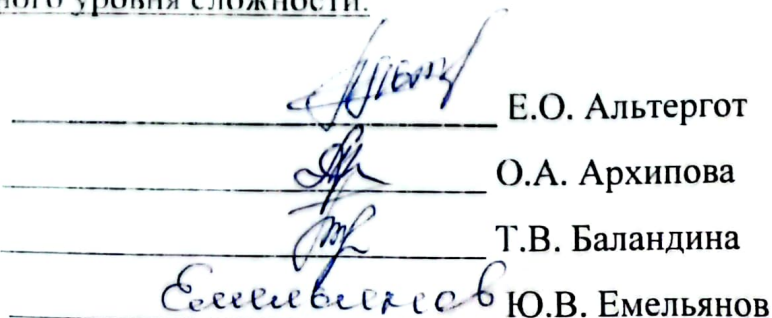 ного уровня сложности.
Е.О. Альтергот
О.А. Архипова
Т.В. Баландина
Емельянов Ю.В. Емельянов